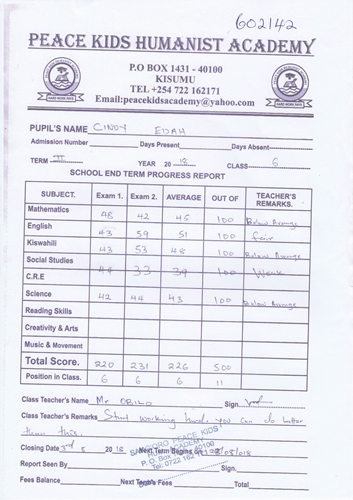 602142
PEACE KIDS HUMANIST ACADEMY
P.O BOX 1431 - 40100
KISUMU
TEL +254 722 162171
Email:peacekidsacademy@yahoo.com
PUPIL'S NAME CINDY EDAH
Admission Number Days Present Days Absent
TERM II YEAR 2018 CLASS 6
SCHOOL END TERM PROGRESS REPORT
SUBJECT. Exam 1. Exam 2. AVERAGE OUT OF TEACHER'S REMARKS.
Mathematics 48 42 45 100 Below Average
English 43 59 51 100 fair
Kiswahili 43 53 48 100 Below Average
Social Studies
C.R.E 33 39 100 Weak
Science 42 44 43 100 Below Average
Reading Skills
Creativity & Arts
Music & Movement
Total Score. 220 231 226 500
Position in Class. 6 6 6 11
Class Teacher's Name Mr OBILO Sign
Class Teacher's Remarks Start working hard, you can do better
than this.
Closing Date 3rd 8 2018 Next Term Begins On 08/018
PEACE KIDS
ACADEMY
P. O. Box 40100
Tel: 0722 162
Report Seen By Sign
Fee Balance Next Term's Fees Total